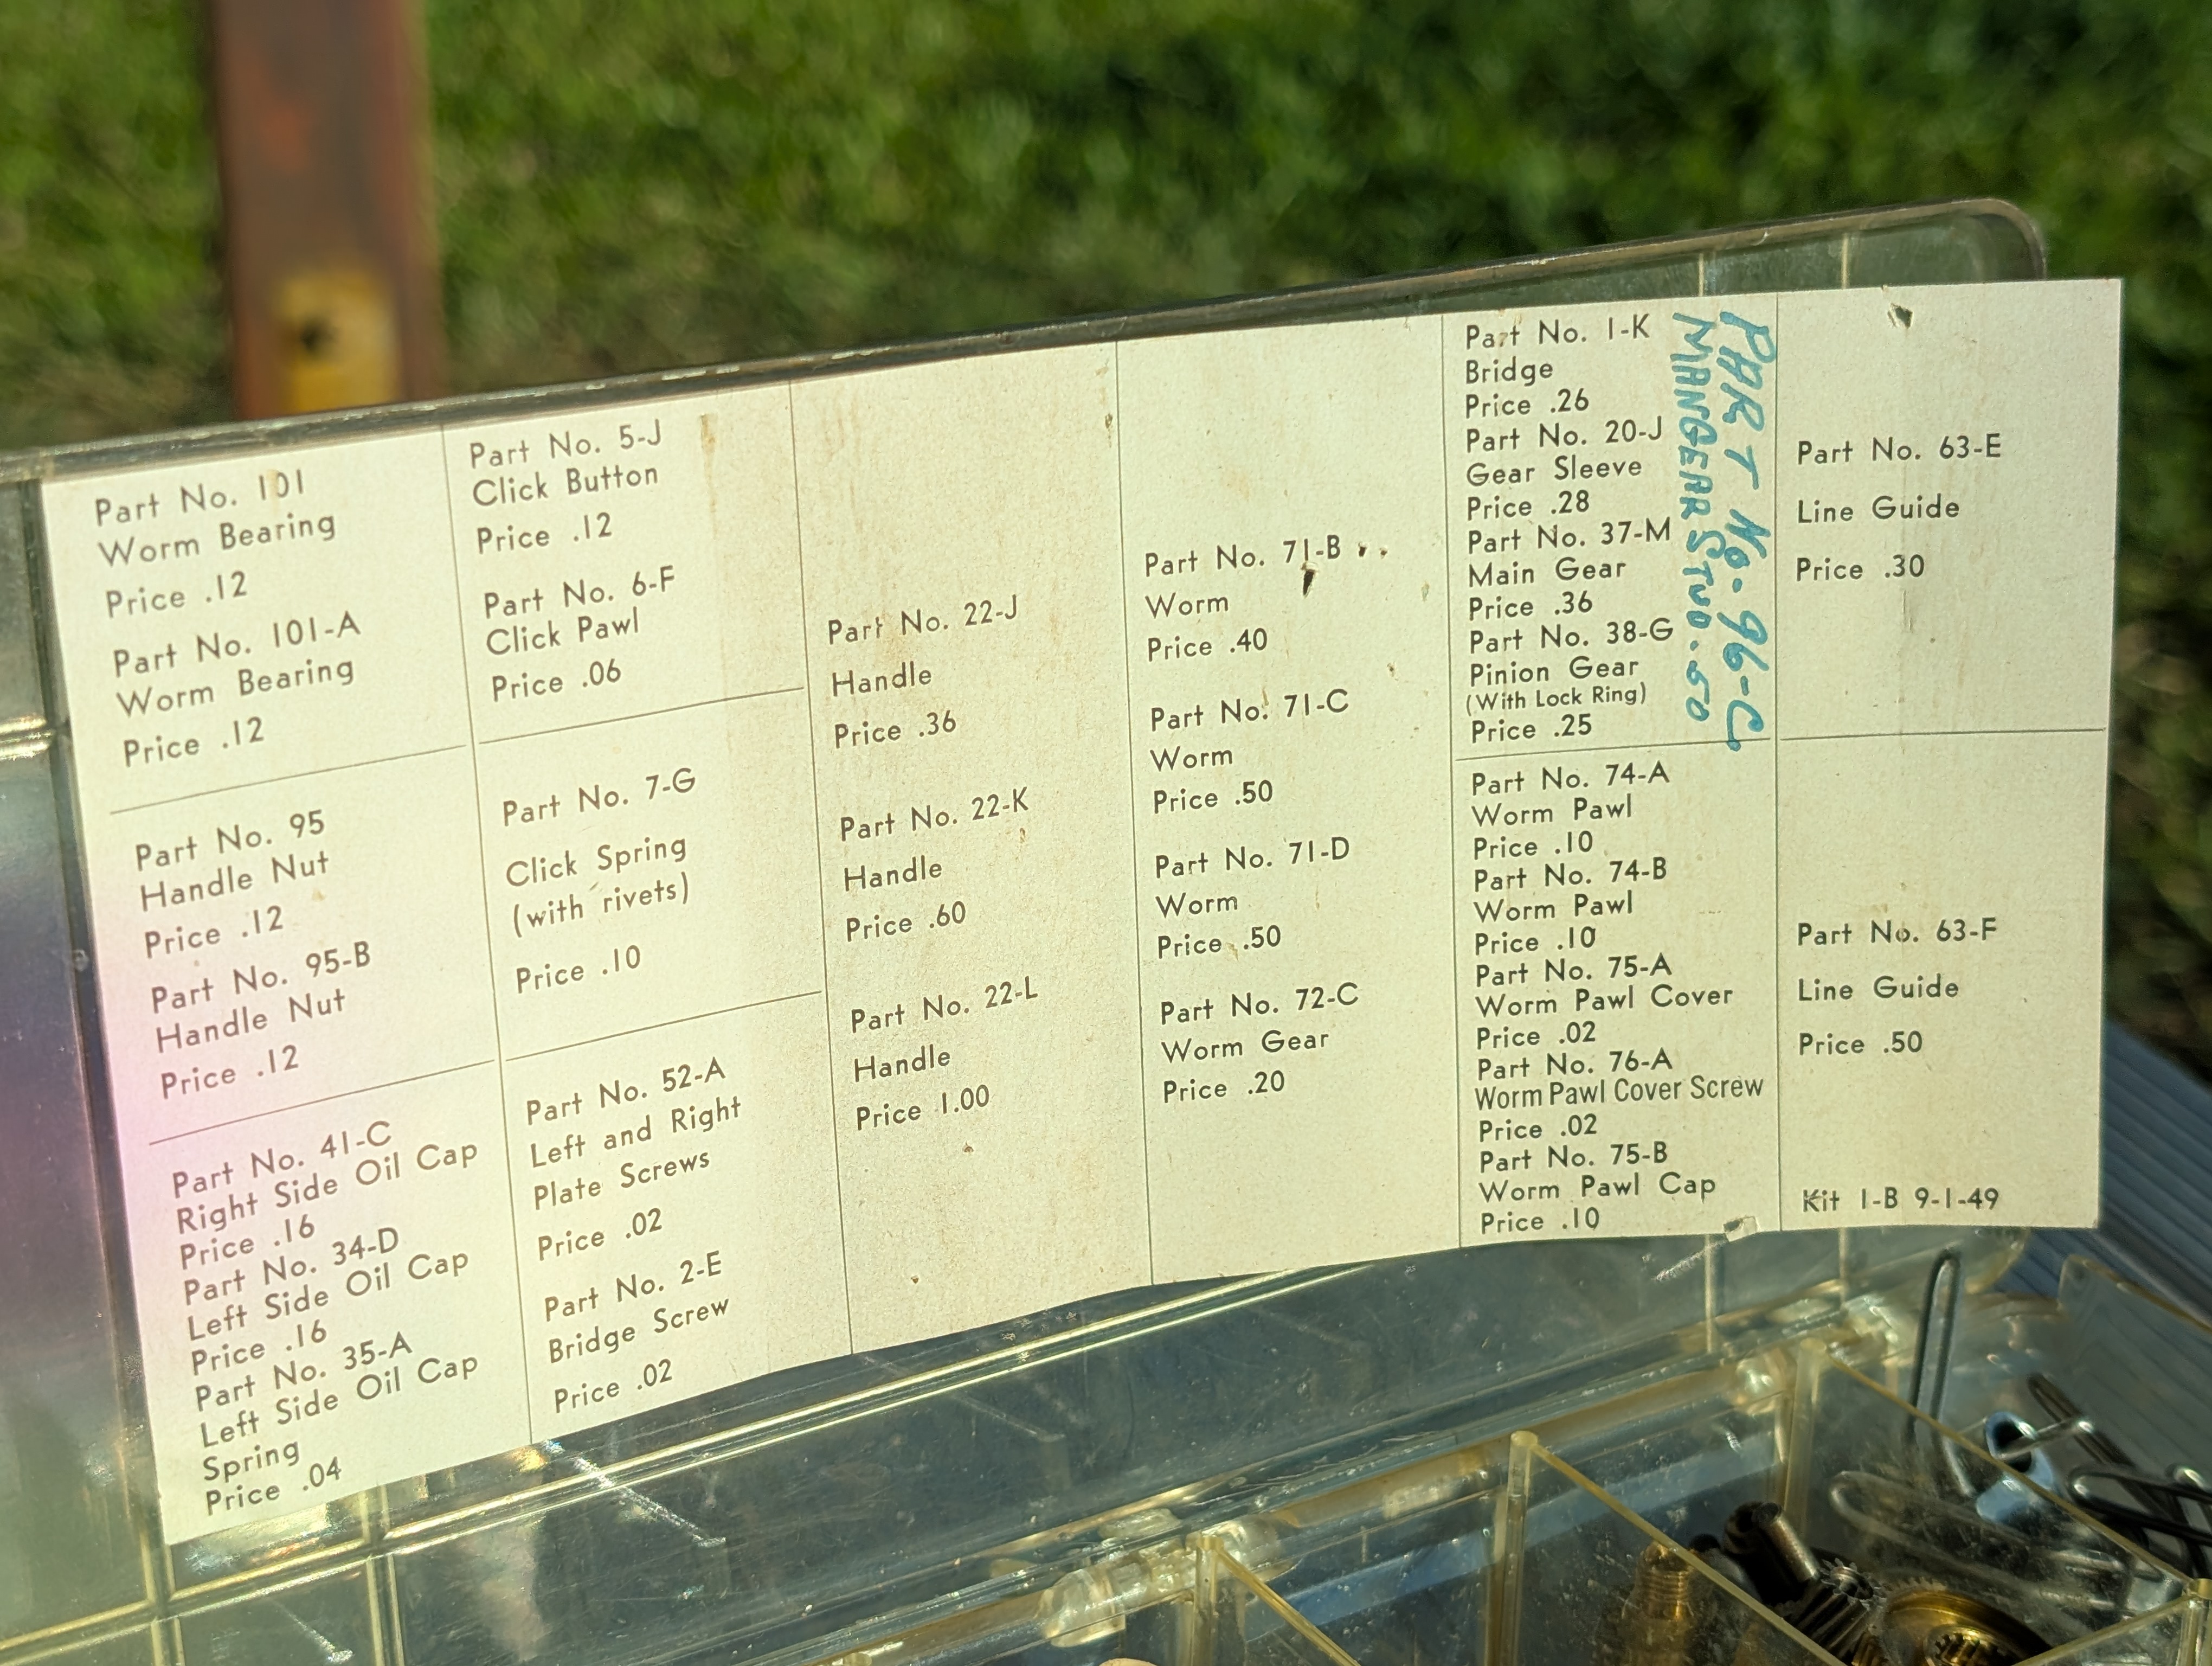 Part No. 101
Worm Bearing
Price .12
Part No. 101-A
Worm Bearing
Price .12
Part No. 95
Handle Nut
Price .12
Part No. 95-B
Handle Nut
Price .12
Part No. 41-C
Right Side Oil Cap
Price .16
Part No. 34-D
Left Side Oil Cap
Price .16
Part No. 35-A
Left Side Oil Cap
Spring
Price .04
Part No. 5-J
Click Button
Price .12
Part No. 6-F
Click Pawl
Price .06
Part No. 7-G
Click Spring
(with rivets)
Price .10
Part No. 52-A
Left and Right
Plate Screws
Price .02
Part No. 2-E
Bridge Screw
Price .02
Part No. 22-J
Handle
Price .36
Part No. 22-K
Handle
Price .60
Part No. 22-L
Handle
Price 1.00
Part No. 71-B
Worm
Price .40
Part No. 71-C
Worm
Price .50
Part No. 71-D
Worm
Price .50
Part No. 72-C
Worm Gear
Price .20
Part No. 1-K
Bridge
Price .26
Part No. 20-J
Gear Sleeve
Price .28
Part No. 37-M
Main Gear
Price .36
Part No. 38-G
Pinion Gear
(With Lock Ring)
Price .25
PART No- 96-C
MAINGEAR STUD .50
Part No. 74-A
Worm Pawl
Price .10
Part No. 74-B
Worm Pawl
Price .10
Part No. 75-A
Worm Pawl Cover
Price .02
Part No. 76-A
Worm Pawl Cover Screw
Price .02
Part No. 75-B
Worm Pawl Cap
Price .10
Part No. 63-E
Line Guide
Price .30
Part No. 63-F
Line Guide
Price .50
Kit 1-B 9-1-49